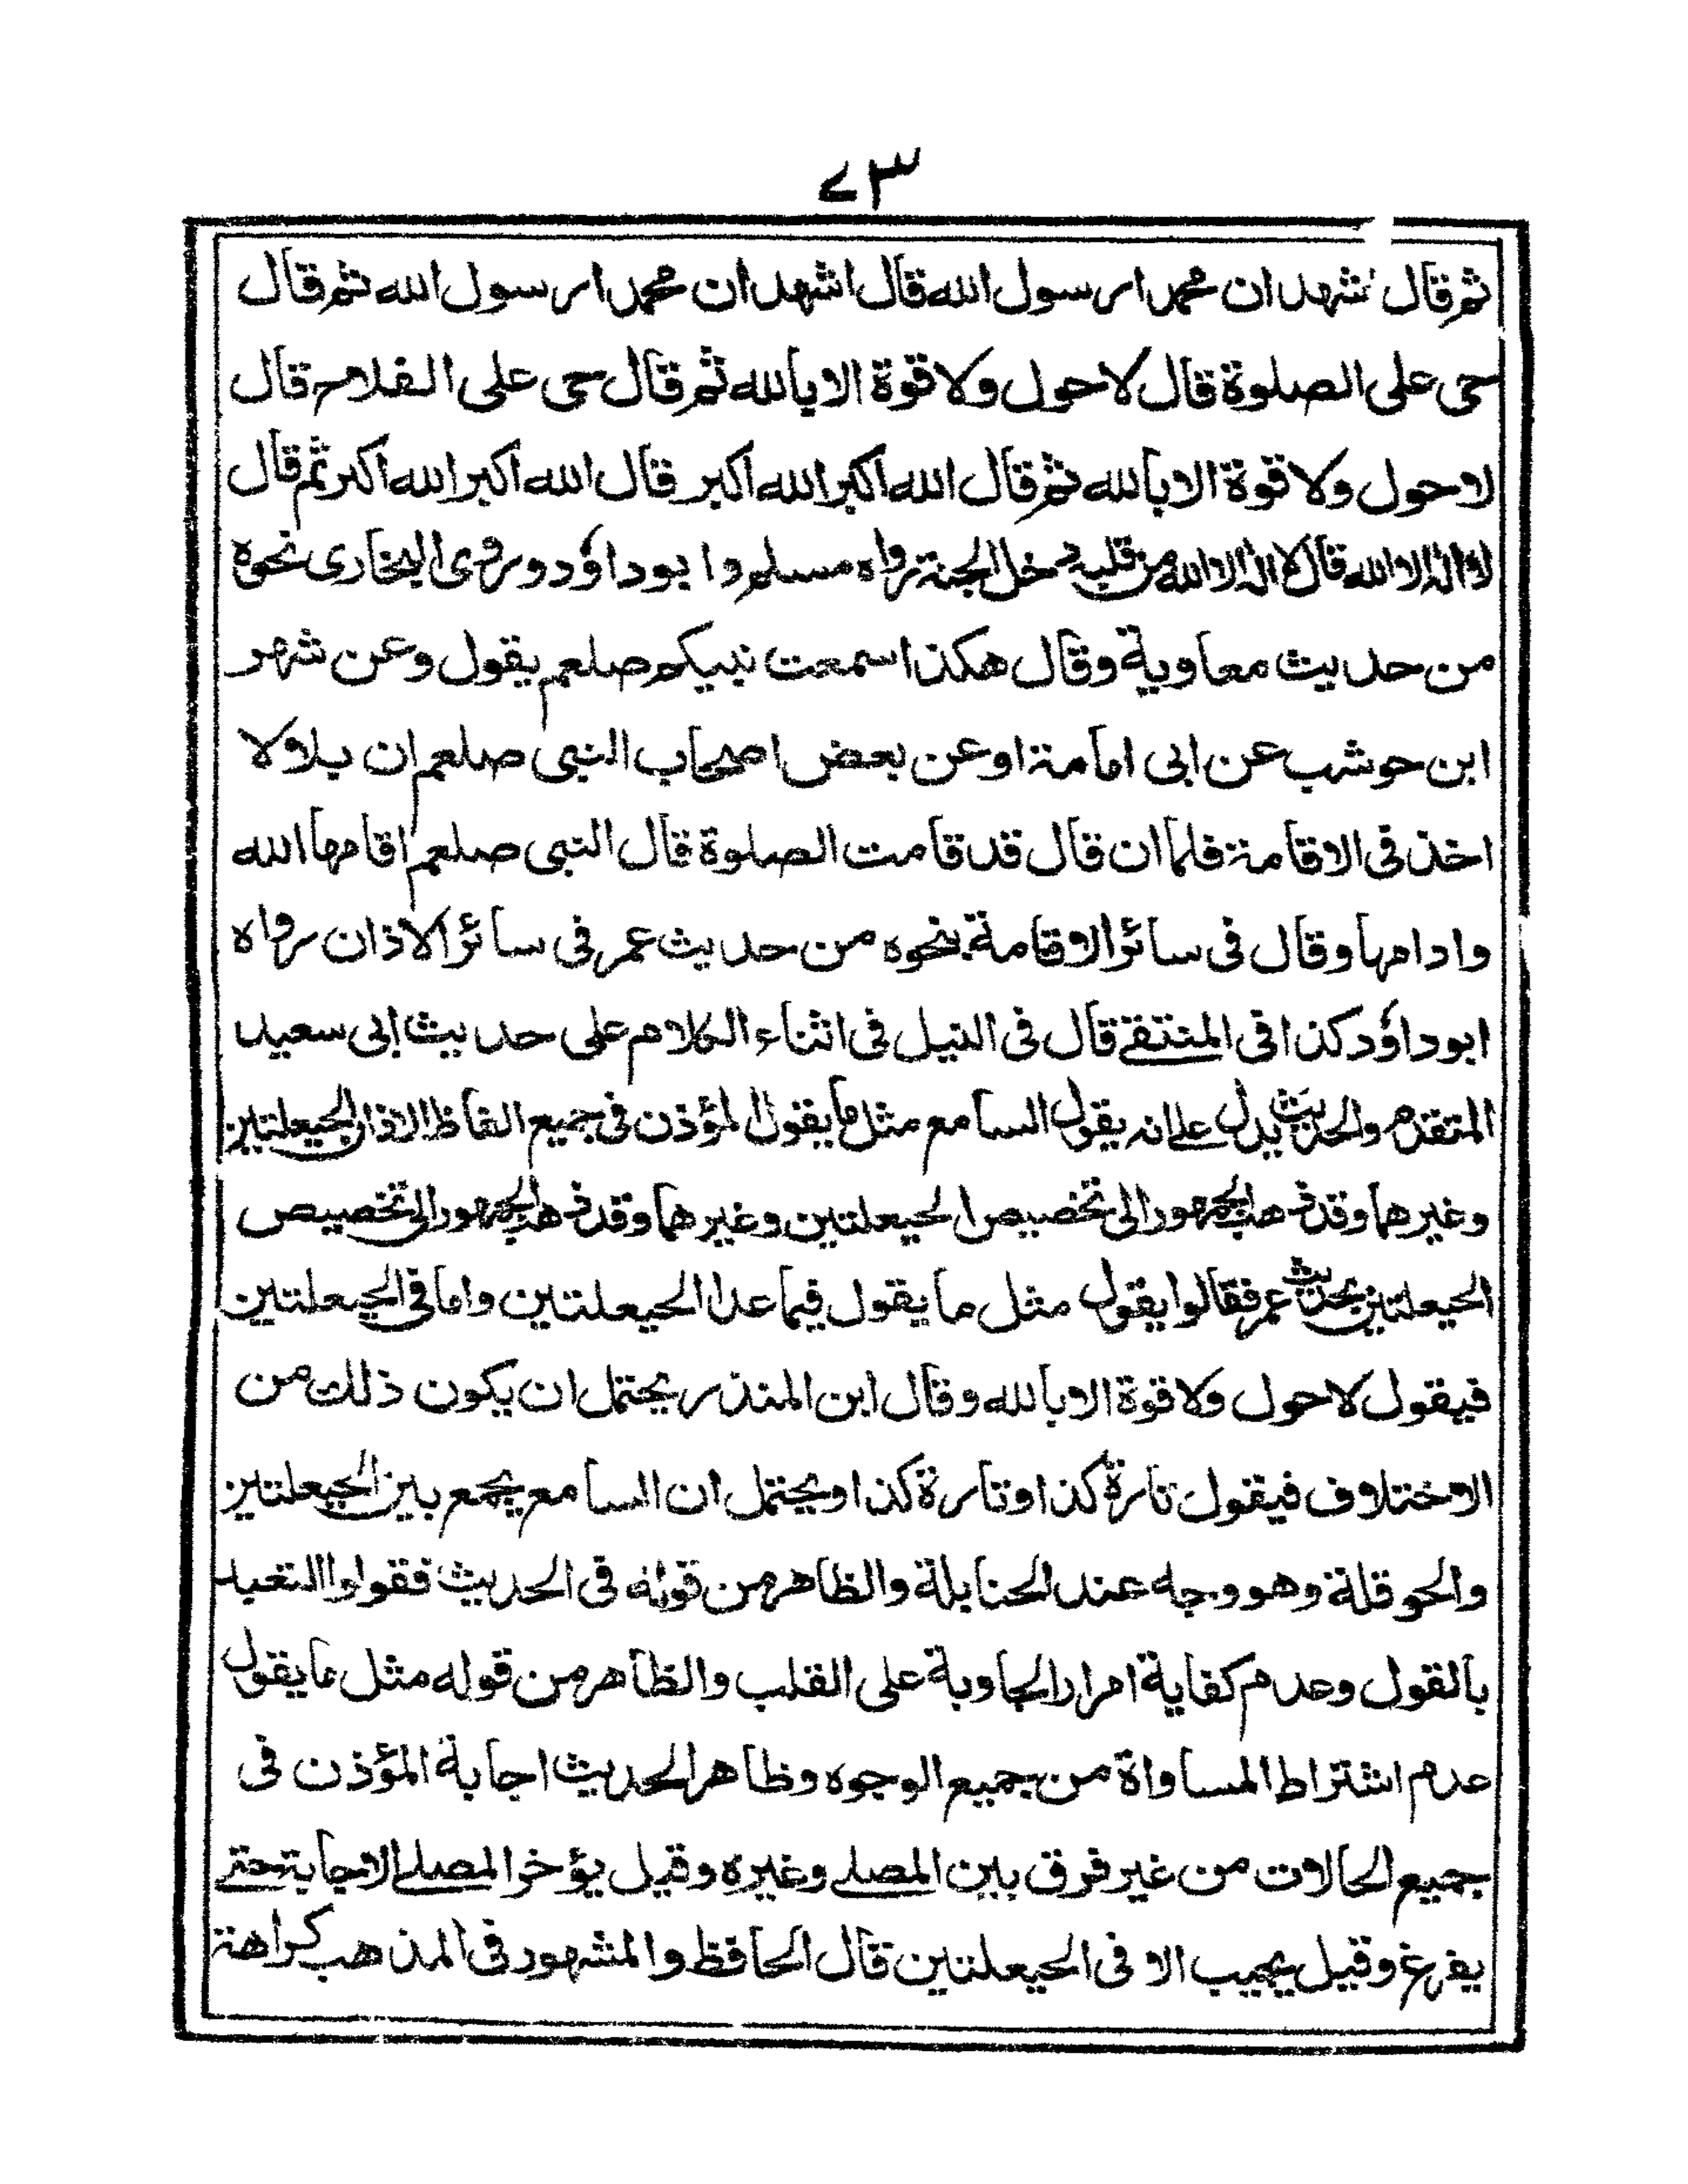 ٧٣
ثم قال اشهد ان محمدا رسول الله قال اشهد ان محمدا رسول الله ثم قال
حى على الصلوة قال لا حول ولا قوة الا بالله ثم قال حى على الفلاح قال
لا حول ولا قوة الا بالله ثم قال الله اكبر الله اكبر قال الله اكبر الله اكبر ثم قال
لا اله الا الله قال لا اله الا الله من قلبه دخل الجنة رواه مسلم وابوداؤد وروى البخارى نحوه
من حديث معاوية وقال هكذا سمعت نبيكم صلعم يقول وعن شهر
ابن حوشب عن ابى امامة او عن بعض اصحاب النبى صلعم ان بلالا
اخذ فى الاقامة فلما ان قال قد قامت الصلوة قال النبى صلعم اقامها الله
وادامها وقال فى سائر الاقامة بنحوه من حديث عمر فى سائر الاذان رواه
ابوداؤد كذا فى المنتقے قال فى النيل فى اثناء الكلام على حديث ابى سعيد
المتقدم والحديث يدل علے انه يقول السامع مثل ما يقول المؤذن فى جميع الفاظ الاذان الحيعلتين
وغيرهما وقد ذهب الجمهور الى تخصيص الحيعلتين وغيرهما وقد ذهب الجمهور الى تخصيص
الحيعلتين بحديث عمر فقالوا يقول مثل ما يقول فيما عدا الحيعلتين واما فى الحيعلتين
فيقول لا حول ولا قوة الا بالله وقال ابن المنذر يحتمل ان يكون ذلك من
الاختلاف فيقول تارة كذا وتارة كذا ويحتمل ان السامع يجمع بين الحيعلتين
والحوقلة وهو وجه عند الحنابلة والظاهر من قوله فى الحديث فقولوا التعبد
بالقول وعدم كفاية امرار المجاوبة على القلب والظاهر من قوله مثل ما يقول
عدم اشتراط المساواة من جميع الوجوه وظاهر الحديث اجابة المؤذن فى
جميع الحالات من غير فرق بين المصلے وغيره وقيل يؤخر المصلے الاجابة حتے
يفرغ وقيل يجيب الا فى الحيعلتين قال الحافظ والمشهور فى المذهب كراهة